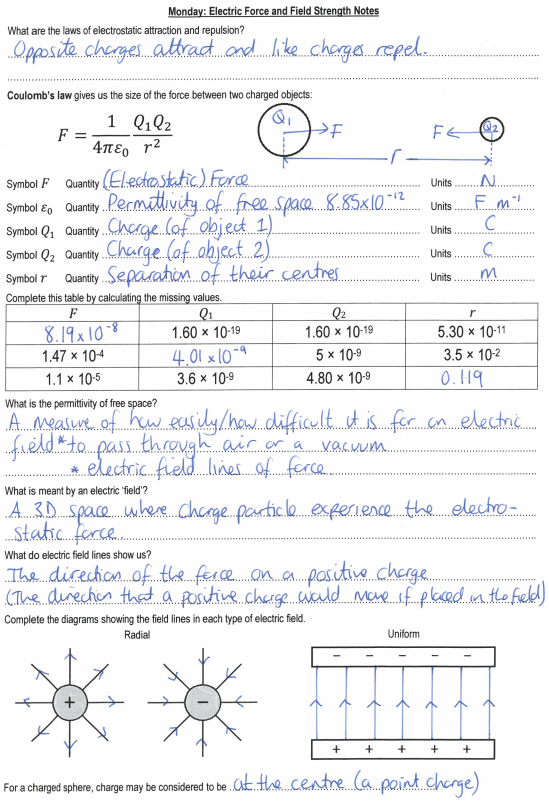 Monday: Electric Force and Field Strength Notes
What are the laws of electrostatic attraction and repulsion?
Opposite charges attract and like charges repel.
Coulomb's law gives us the size of the force between two charged objects:
F = 1/4πε₀ Q₁Q₂/r²
Q₁ F F Q₂
r
Symbol F Quantity (Electrostatic) Force Units N
Symbol ε₀ Quantity Permittivity of free space 8.85x10⁻¹² Units F m⁻¹
Symbol Q₁ Quantity Charge (of object 1) Units C
Symbol Q₂ Quantity Charge (of object 2) Units C
Symbol r Quantity Separation of their centres Units m
Complete this table by calculating the missing values.
F Q₁ Q₂ r
8.19 x 10⁻⁸ 1.60 × 10-19 1.60 × 10-19 5.30 × 10-11
1.47 × 10-4 4.01 x 10⁻⁹ 5 × 10-9 3.5 × 10-2
1.1 × 10-5 3.6 × 10-9 4.80 × 10-9 0.119
What is the permittivity of free space?
A measure of how easily/how difficult it is for an electric
field* to pass through air or a vacuum
* electric field lines of force
What is meant by an electric 'field'?
A 3D space where charge particle experience the electro-
static force.
What do electric field lines show us?
The direction of the force on a positive charge
(The direction that a positive charge would move if placed in the field)
Complete the diagrams showing the field lines in each type of electric field.
Radial Uniform
− − − − − −
+ −
+ + + + + +
For a charged sphere, charge may be considered to be at the centre (a point charge)